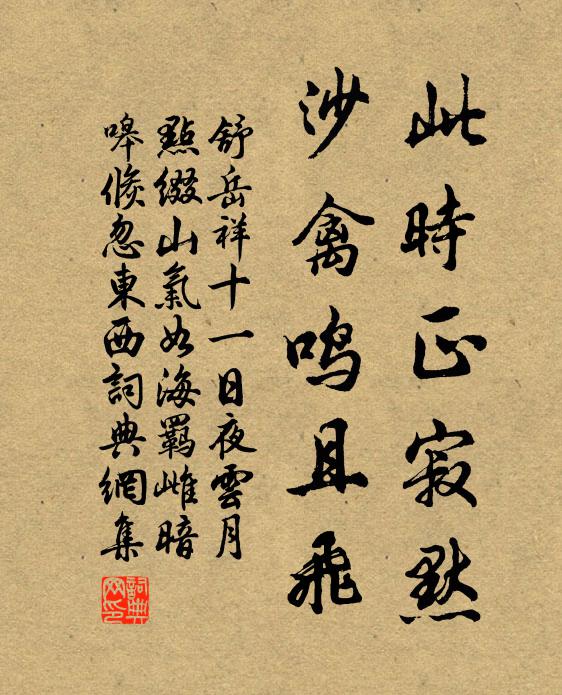 此時正寂默
沙禽鳴且飛
舒岳祥十一日夜雲月
點綴山氣如海羈雌暗
嗥倐忽東西詞典網集
詞典网印